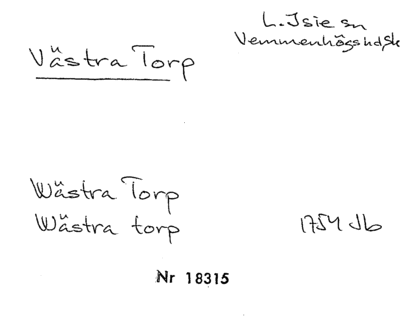 L. Isie sn
Vemmenhögs hd, Sk
Västra Torp
Wästra Torp
Wästra torp 1754 Jb
Nr 18315